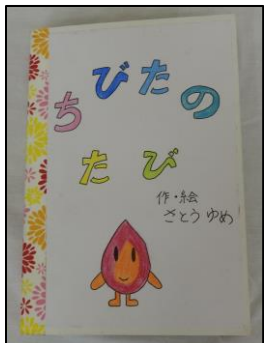 ちびたの
たび
作・絵
さとうゆめ!